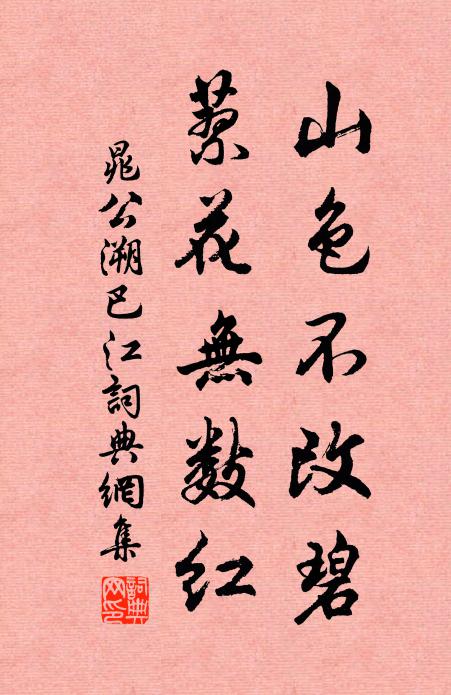 山色不改碧
花無数紅
晁公溯巴江詞典網集
詞典网印